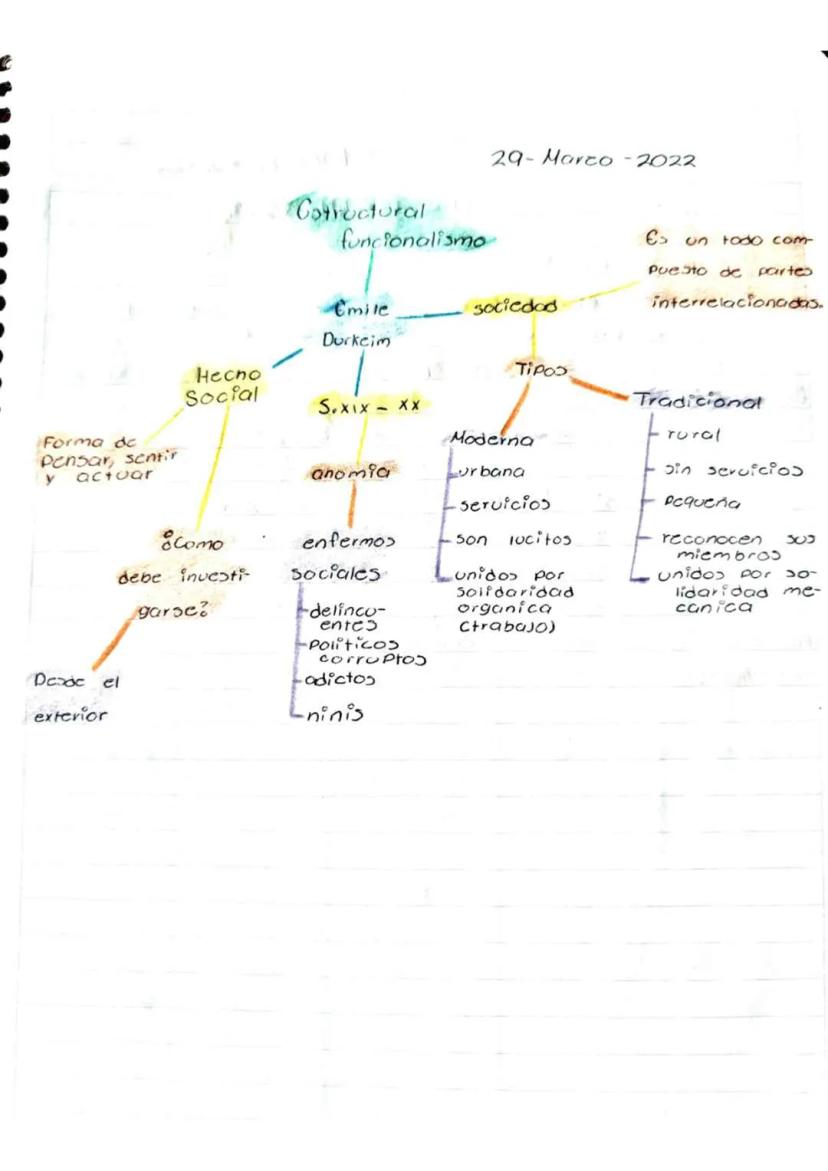 29- Marzo -2022
Estructural
funcionalismo
Emile
Durkeim
sociedad
Es un todo com-
puesto de partes
interrelacionadas.
Hecho
Social
Forma de
pensar, sentir
y actuar
¿Como
debe investi-
garse?
Desde el
exterior
S. XIX - XX
anomia
enfermos
sociales
-delincu-
entes
-Politicos
corruptos
-adictos
-ninis
Tipos
Moderna
-urbana
-servicios
-son lucitos
-unidos por
solidaridad
organica
(trabajo)
Tradicional
- rural
- sin servicios
- pequeña
- reconocen sus
miembros
- unidos por so-
lidaridad me-
canica